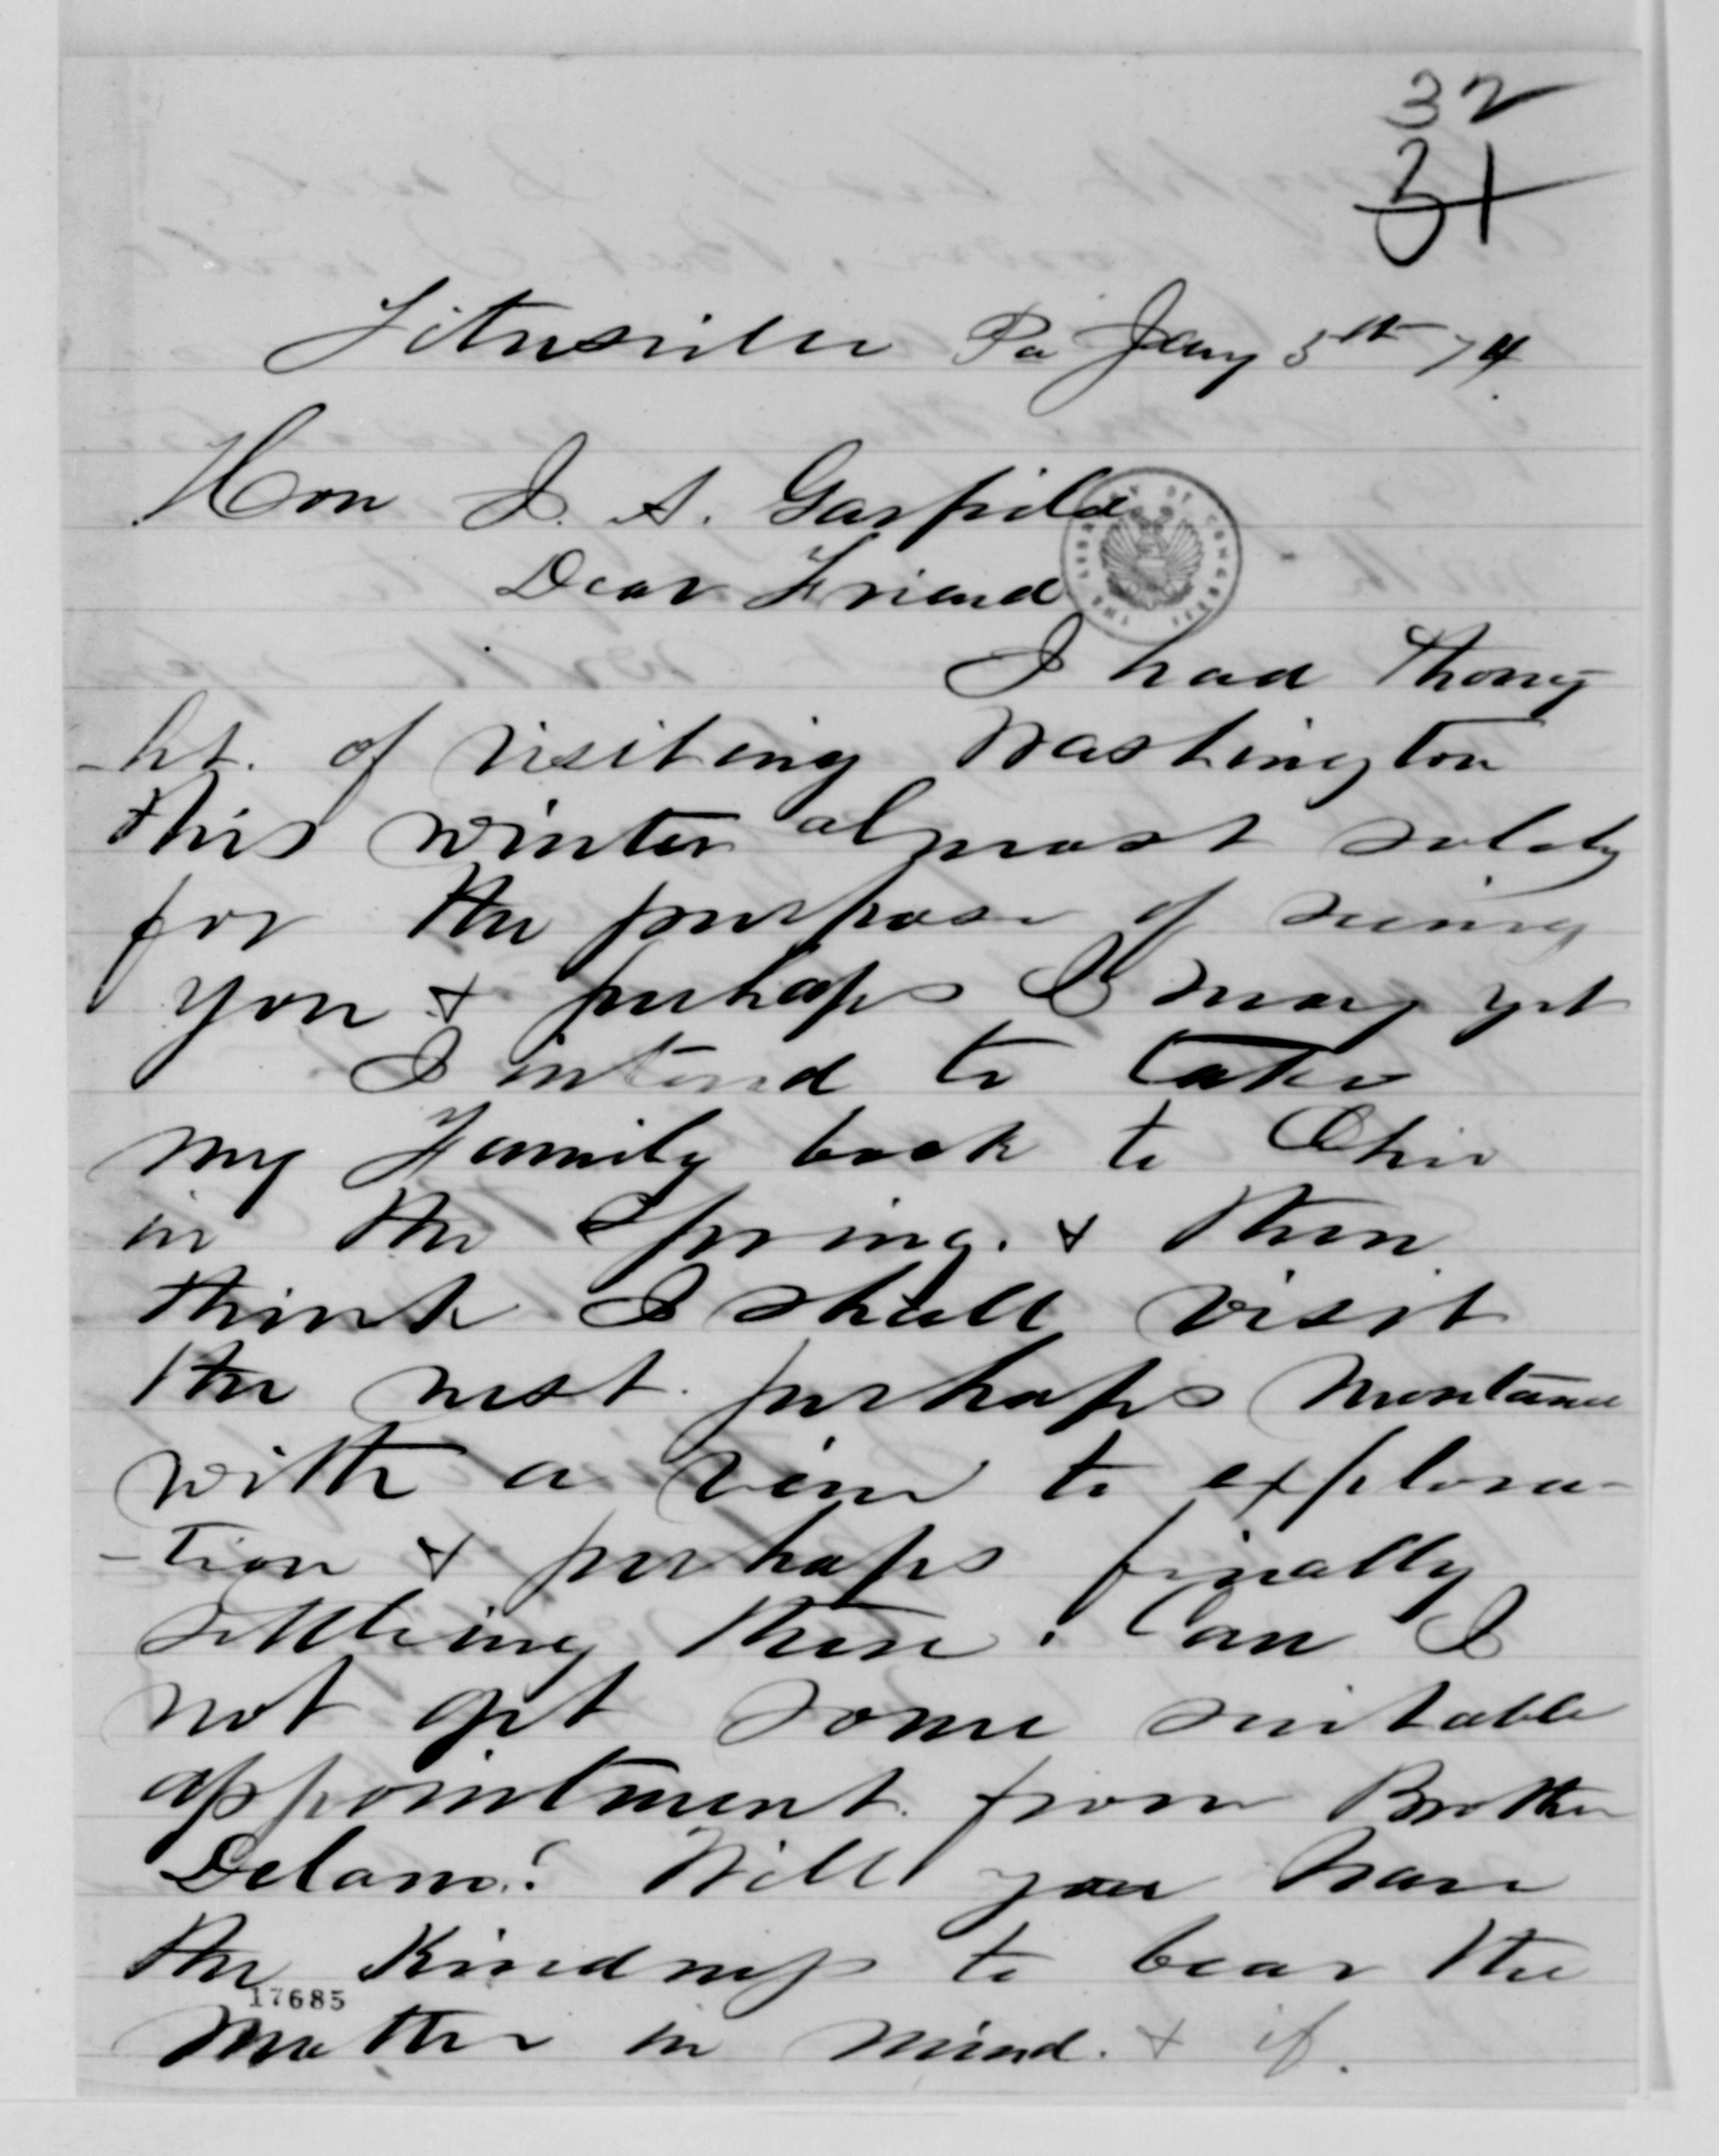 32
31
Titusville Pa Jany 5th 74.
Hon J. A. Garfield
Dear Friend
THE LIBRARY OF CONGRESS
I had thoug
-ht. of visiting Washington
this winter almost solely
for the purpose of seeing
you & perhaps I may yet
I intend to take
my Family back to Ohio
in the Spring. & then
think I shall visit
the west. perhaps Montana
with a view to explora-
-tion & perhaps finally
settling there. Can I
not get some suitable
appointment. from Brother
Delano? Will you have
the kindness to bear the
17685
matter in mind. & if.